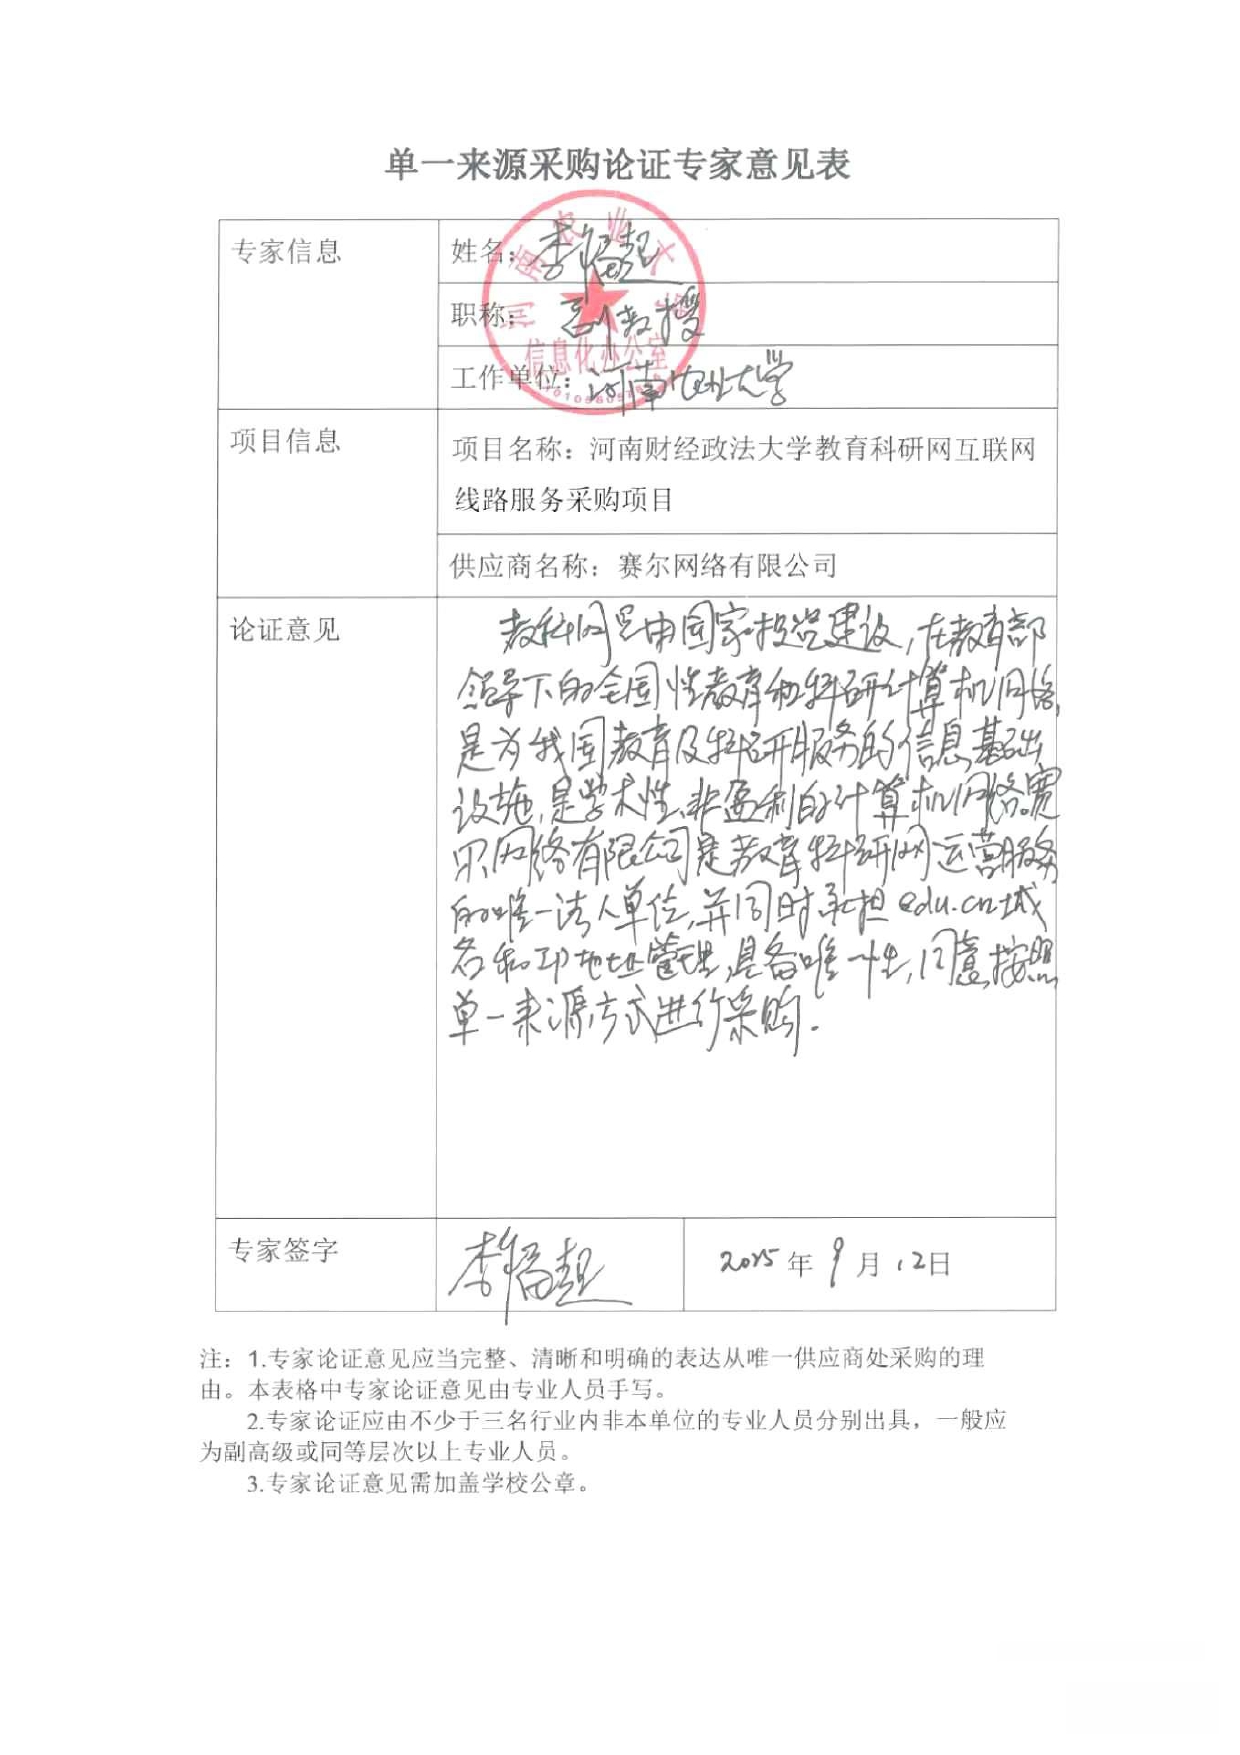 单一来源采购论证专家意见表
专家信息
姓名：李福超
河南农业大学
信息化办公室
职称：副教授
工作单位：河南农业大学
项目信息
项目名称：河南财经政法大学教育科研网互联网
线路服务采购项目
供应商名称：赛尔网络有限公司
论证意见
教科网是由国家投资建设，在教育部
领导下的全国性教育和科研计算机网络，
是为我国教育及科研服务的信息基础
设施，是学术性、非盈利的计算机网络。赛
尔网络有限公司是教育科研网运营服务
的唯一法人单位，并同时承担edu.cn域
名和IP地址管理，具备唯一性，同意按照
单一来源方式进行采购.
专家签字
李福超
2025年9月12日
注：1.专家论证意见应当完整、清晰和明确的表达从唯一供应商处采购的理
由。本表格中专家论证意见由专业人员手写。
2.专家论证应由不少于三名行业内非本单位的专业人员分别出具，一般应
为副高级或同等层次以上专业人员。
3.专家论证意见需加盖学校公章。